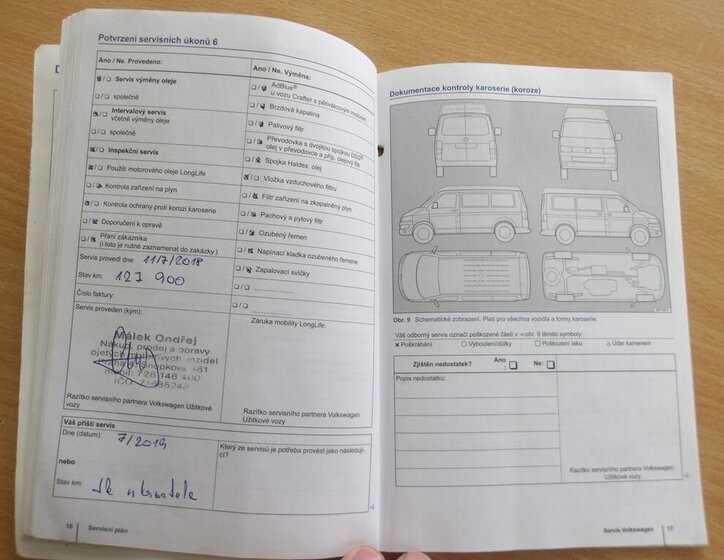 Potvrzení servisních úkonů 6
Ano / Ne. Provedeno:
Servis výměny oleje
společně
Intervalový servis
včetně výměny oleje
společně
Inspekční servis
Použití motorového oleje LongLife
Kontrola zařízení na plyn
Kontrola ochrany proti korozi karoserie
Doporučení k opravě
Přání zákazníka
(i toto je nutné zaznamenat do zakázky.)
Servis provedl dne: 11/7/2018
Stav km: 127 900
Číslo faktury:
Servis proveden (kým):
Málek Ondřej
Nákup, prodej a opravy
ojetých motorových vozidel
mobil: 728 146 400
Razítko servisního partnera Volkswagen Užitkové
vozy
Ano / Ne. Výměna:
AdBlue®
u vozu Crafter s pětiválcovým motorem
Brzdová kapalina
Palivový filtr
Převodovka s dvojitou spojkou DSG®:
olej v převodovce a příp. olejový filtr
Spojka Haldex: olej
Vložka vzduchového filtru
Filtr zařízení na zkapalněný plyn
Pachový a pylový filtr
Ozubený řemen
Napínací kladka ozubeného řemene
Zapalovací svíčky
Záruka mobility LongLife:
Razítko servisního partnera Volkswagen
Užitkové vozy
Váš příští servis
Dne (datum): 7/2019
nebo
Stav km:
Který ze servisů je potřeba provést jako následují-
cí?
16 Servisní plán
Dokumentace kontroly karoserie (koroze)
Obr. 9 Schematické zobrazení. Platí pro všechna vozidla a formy karoserie.
Váš odborný servis označí poškozené části v ⇒ obr. 9 těmito symboly:
× Poškrábání ○ Vyboulení/důlky □ Poškození laku △ Úder kamenem
Zjištěn nedostatek? Ano Ne:
Popis nedostatku:
Razítko servisního partnera Volkswagen
Užitkové vozy
Servis Volkswagen 17